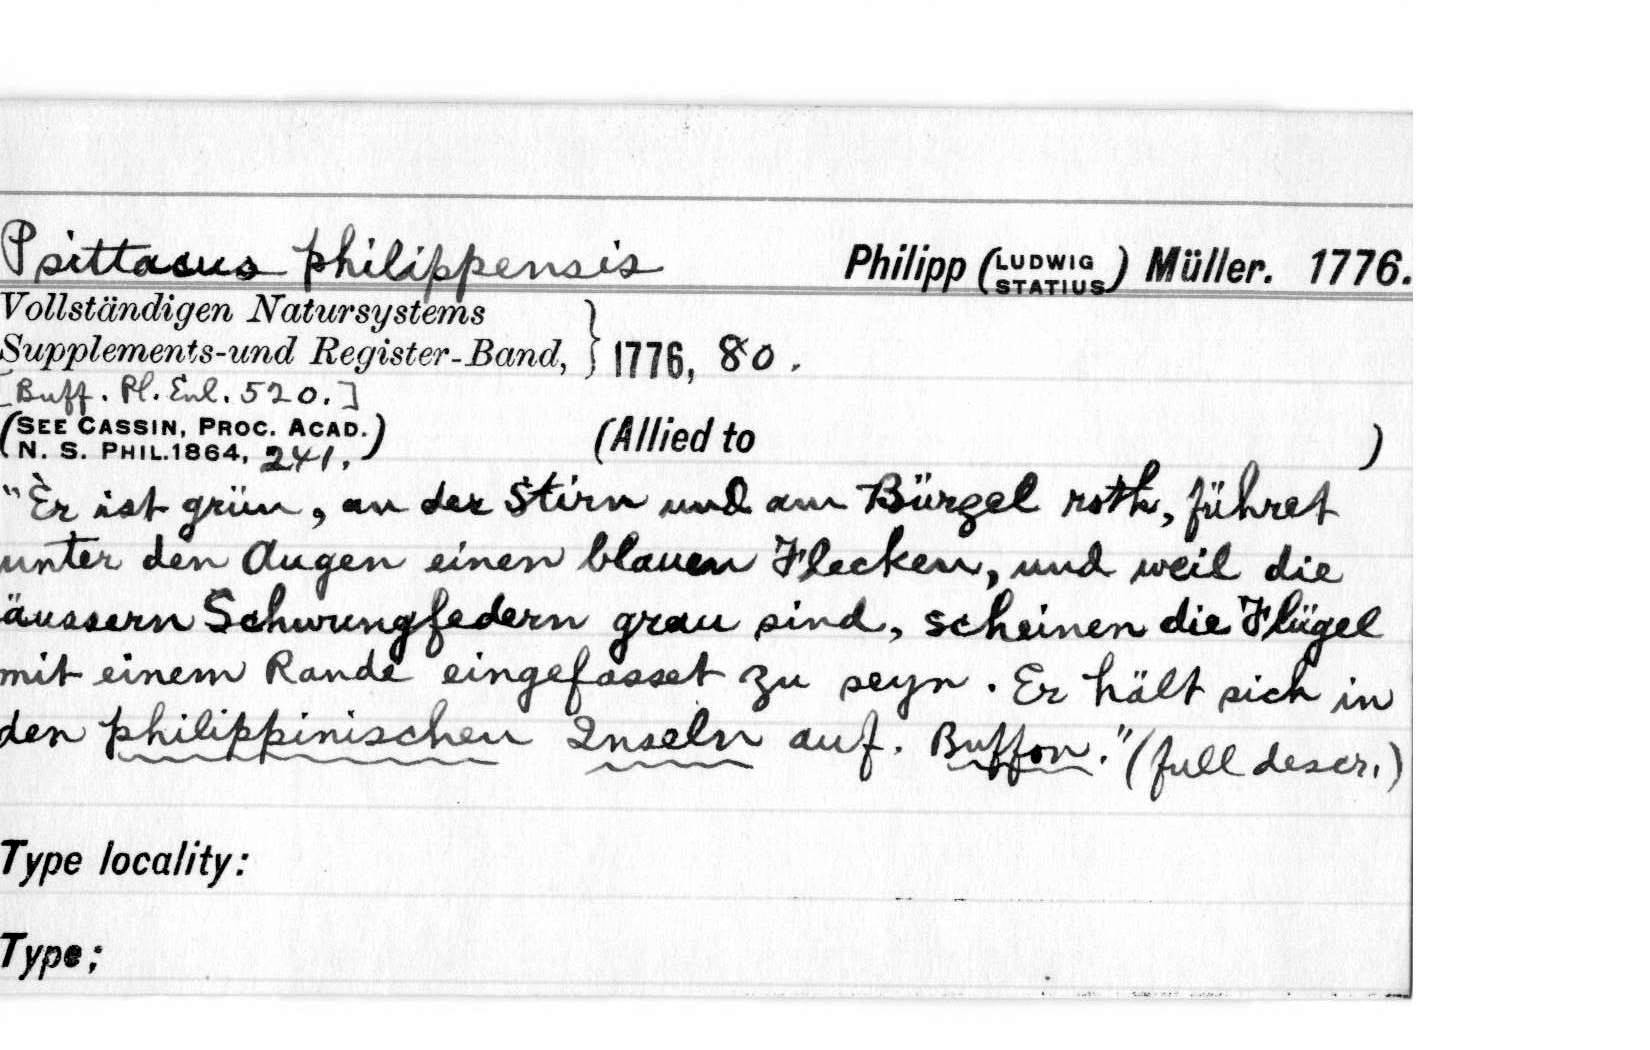 Psittacus philippensis Philipp (LUDWIG STATIUS) Müller. 1776.
Vollständigen Natursystems
Supplements-und Register-Band, } 1776, 80.
[Buff. Pl. Enl. 520.]
(SEE CASSIN, PROC. ACAD.
N. S. PHIL. 1864, 241.) (Allied to )
"Er ist grün, an der Stirn und am Bürgel roth, führet
unter den Augen einen blauen Flecken, und weil die
äussern Schwungfedern grau sind, scheinen die Flügel
mit einem Rande eingefasset zu seyn. Er hält sich in
den philippinischen Inseln auf. Buffon." (full descr.)
Type locality:
Type;